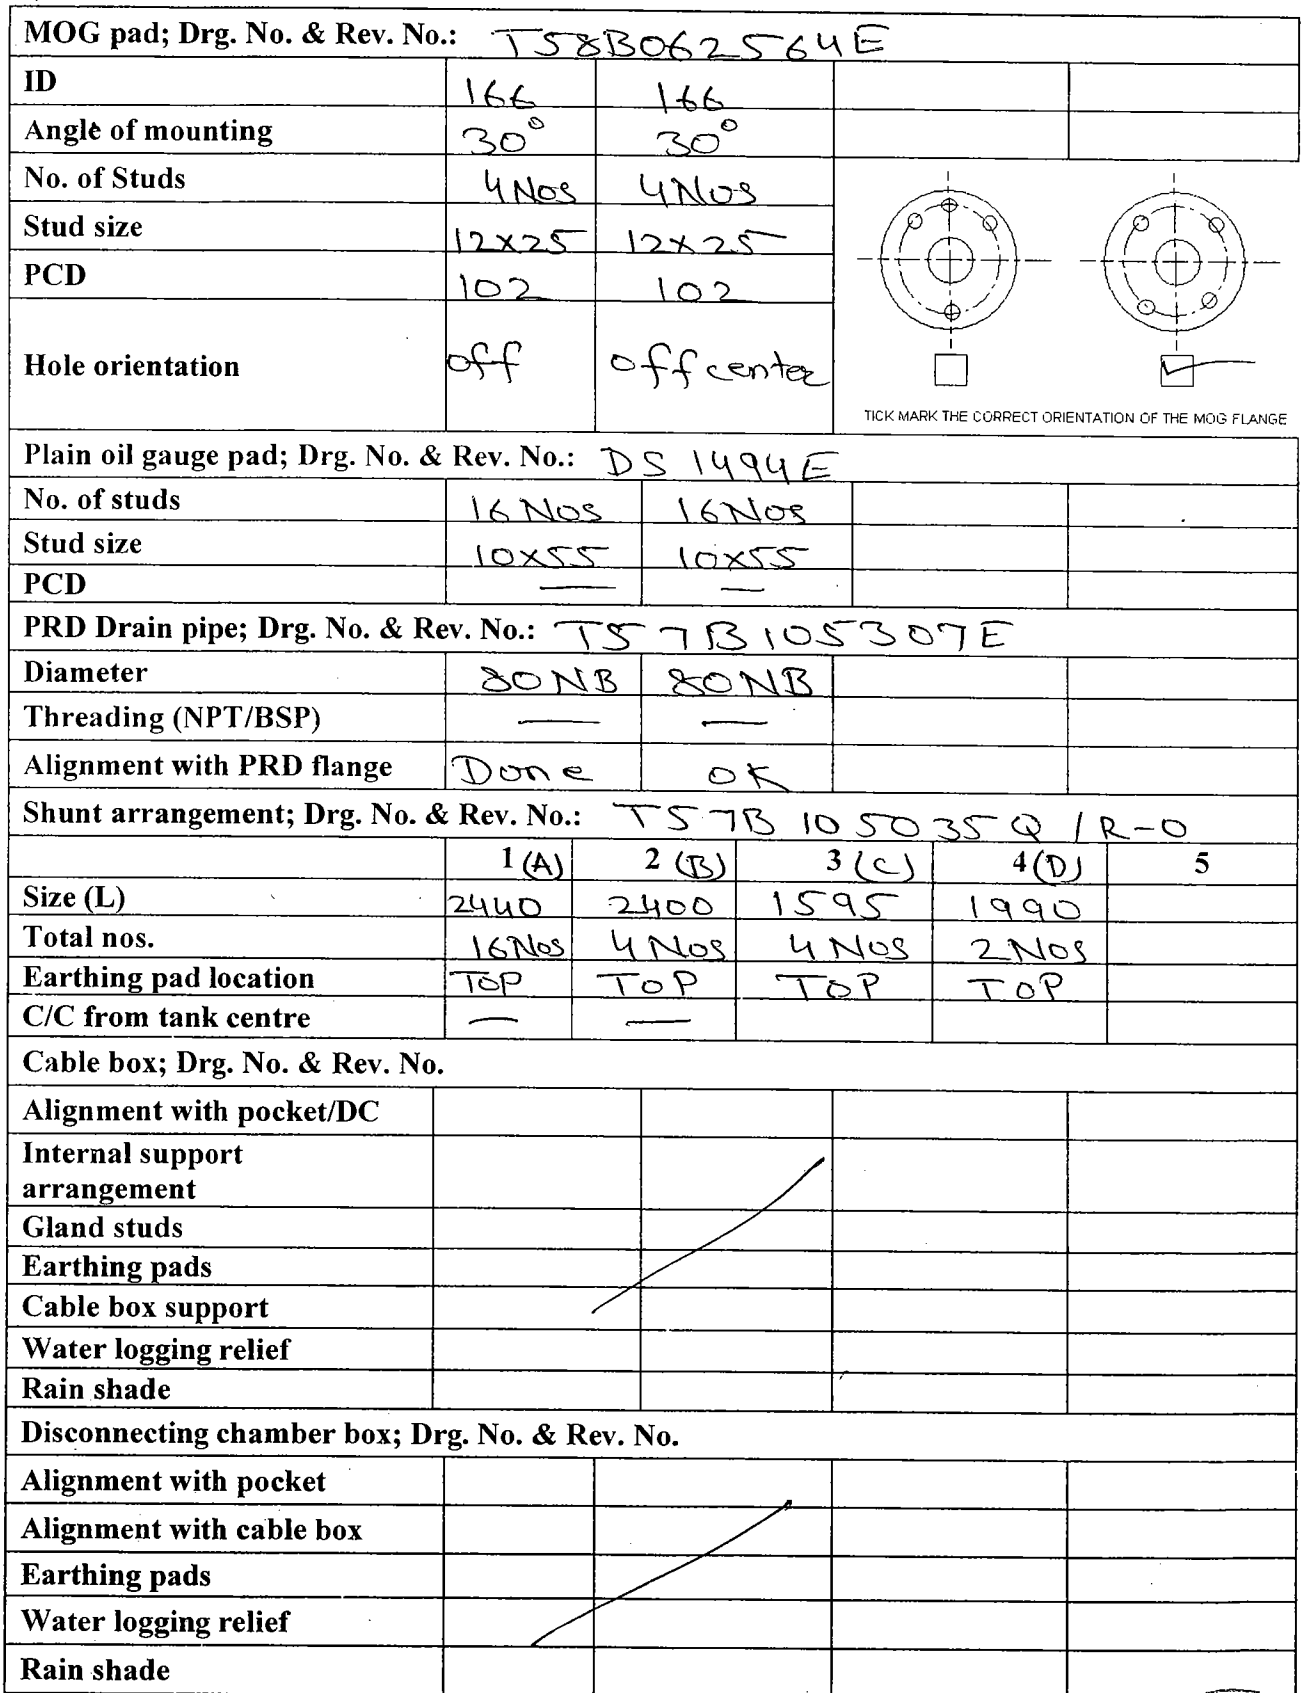 MOG pad; Drg. No. & Rev. No.: TS8B062564E
ID 166 166
Angle of mounting 30° 30°
No. of Studs 4 Nos 4 Nos
Stud size 12x25 12x25
PCD 102 102
Hole orientation off off center
TICK MARK THE CORRECT ORIENTATION OF THE MOG FLANGE
Plain oil gauge pad; Drg. No. & Rev. No.: DS 1494E
No. of studs 16 Nos 16 Nos
Stud size 10x55 10x55
PCD — —
PRD Drain pipe; Drg. No. & Rev. No.: TS7B105307E
Diameter 80NB 80NB
Threading (NPT/BSP) — —
Alignment with PRD flange Done OK
Shunt arrangement; Drg. No. & Rev. No.: TS7B105035Q / R-0
1 (A) 2 (B) 3 (C) 4 (D) 5
Size (L) 2440 2400 1595 1990
Total nos. 16 Nos 4 Nos 4 Nos 2 Nos
Earthing pad location TOP TOP TOP TOP
C/C from tank centre — —
Cable box; Drg. No. & Rev. No.
Alignment with pocket/DC
Internal support
arrangement
Gland studs
Earthing pads
Cable box support
Water logging relief
Rain shade
Disconnecting chamber box; Drg. No. & Rev. No.
Alignment with pocket
Alignment with cable box
Earthing pads
Water logging relief
Rain shade